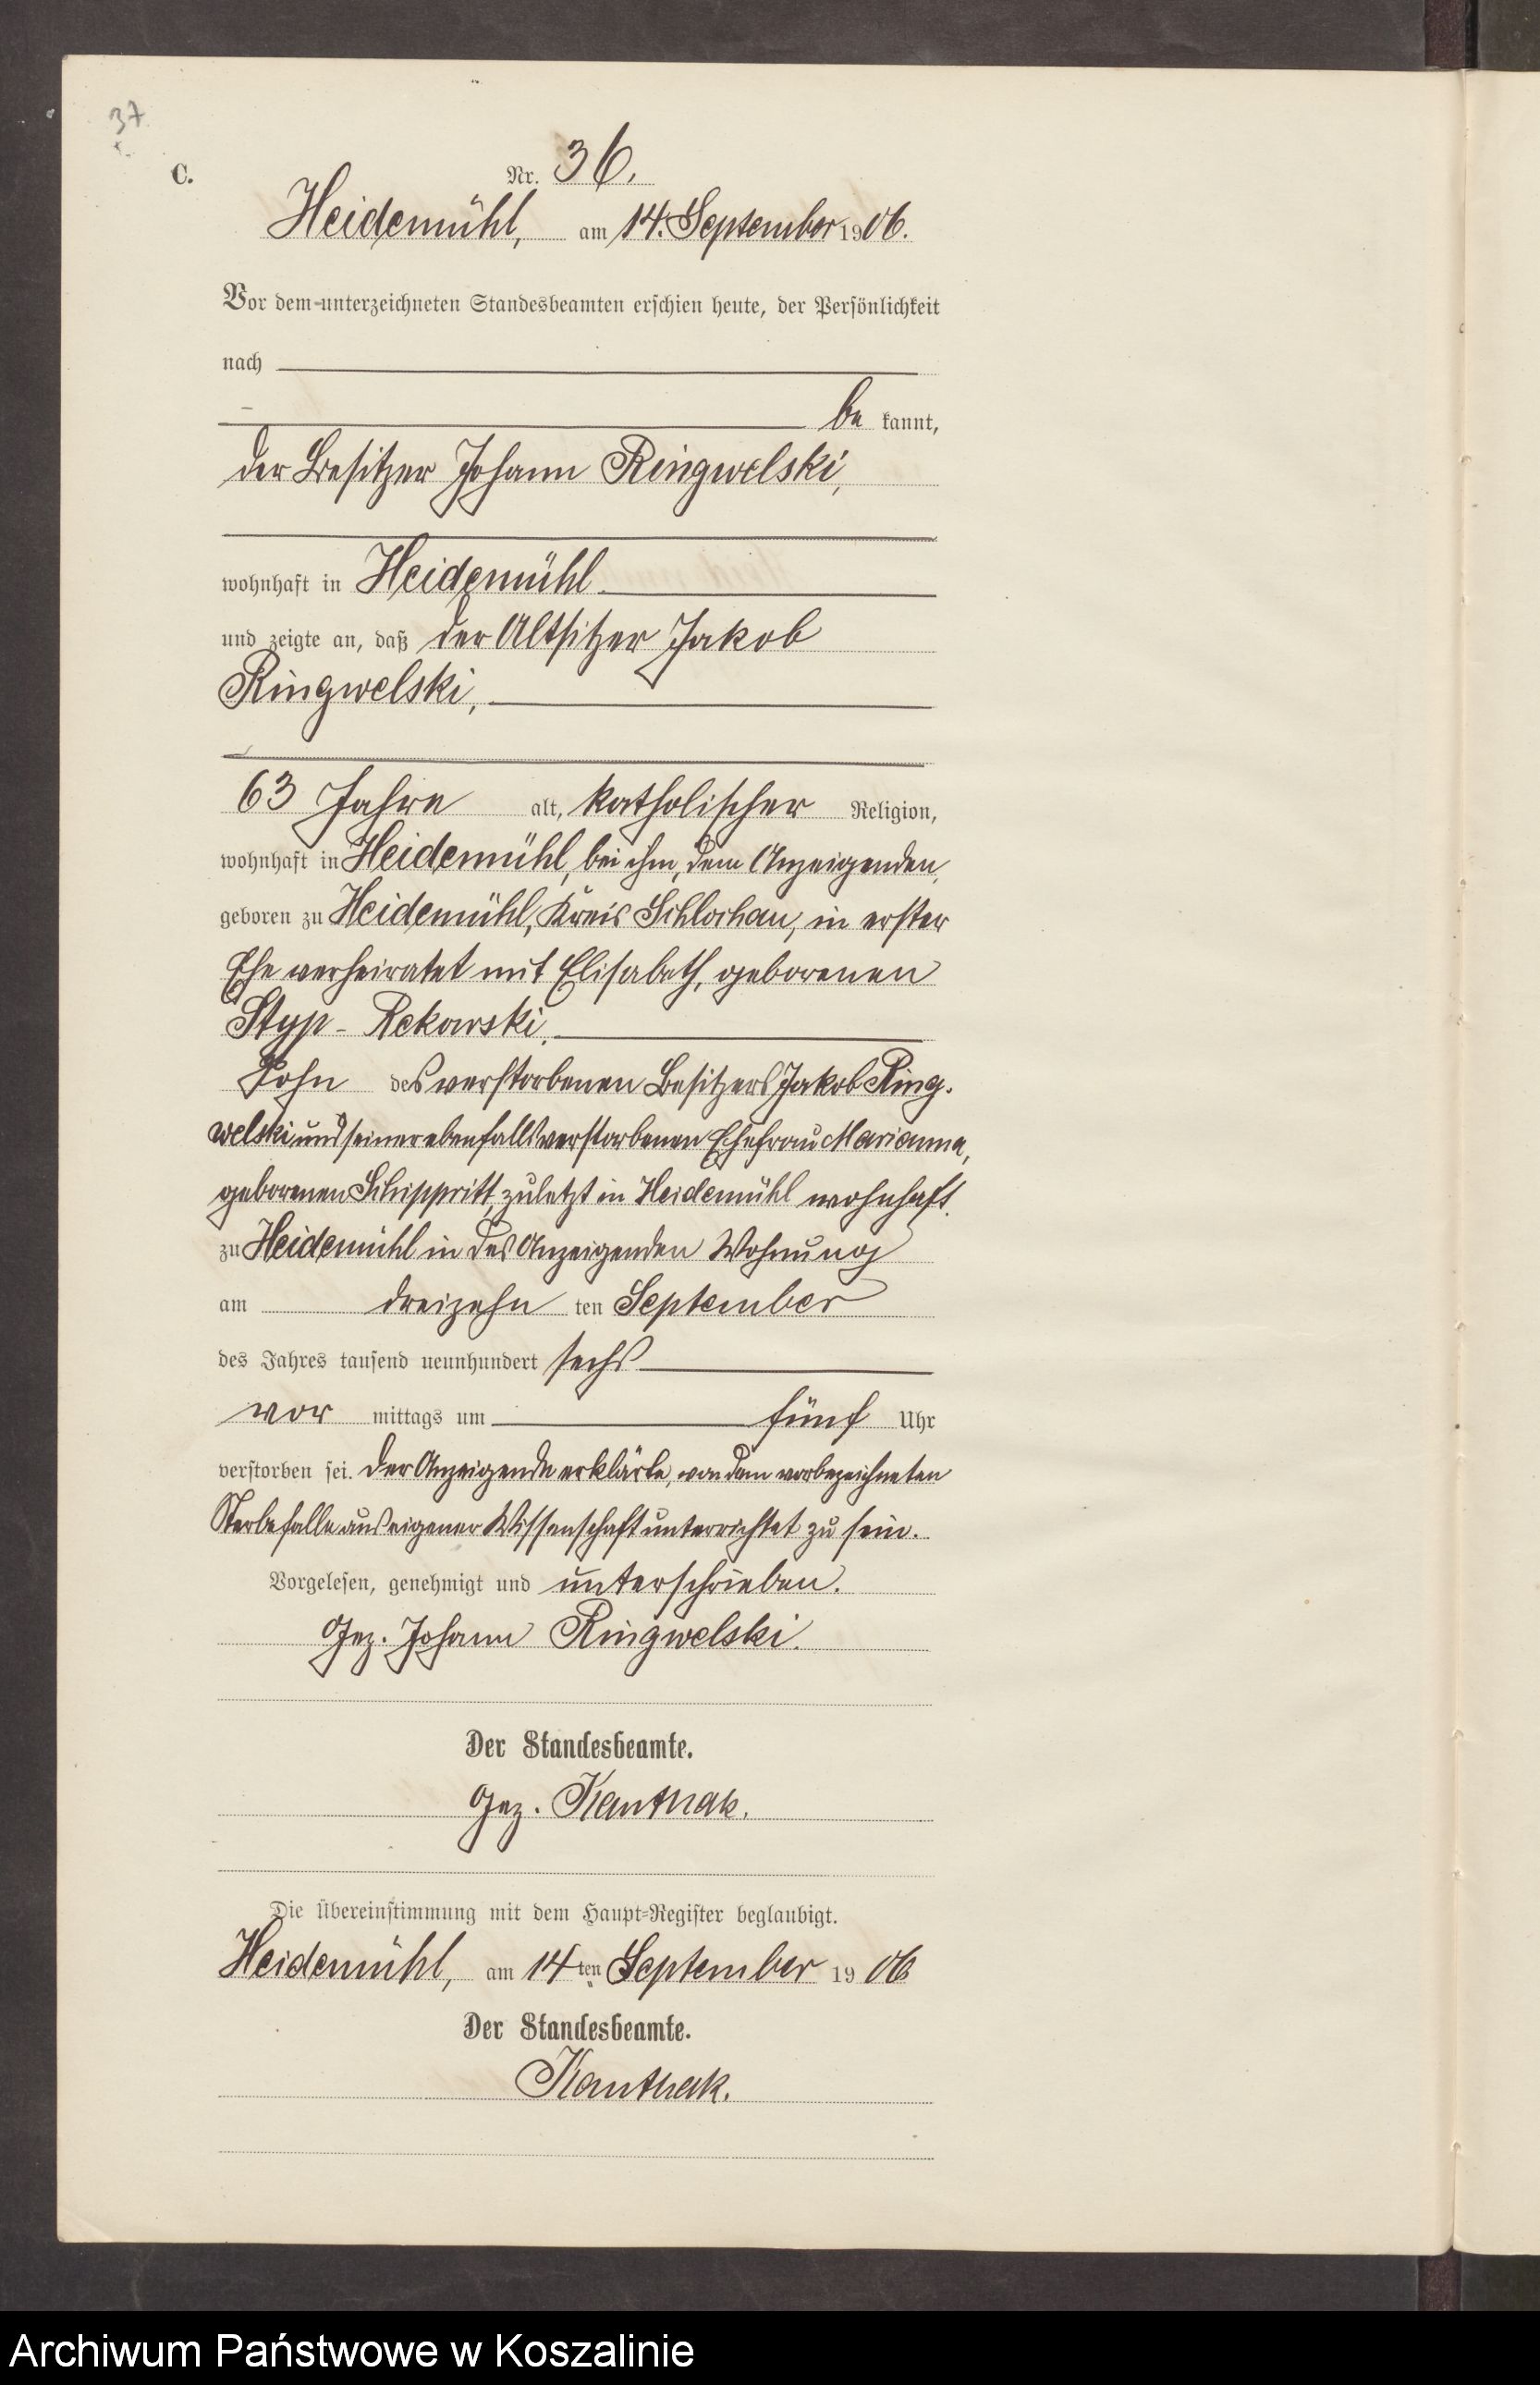 37
C.
Nr. 36.
Heidemühl, am 14. September 1906.
Vor dem unterzeichneten Standesbeamten erschien heute, der Persönlichkeit
nach
be kannt,
der Besitzer Johann Ringwelski,
wohnhaft in Heidemühl
und zeigte an, daß der Altsitzer Jakob
Ringwelski,
63 Jahre alt, katholischer Religion,
wohnhaft in Heidemühl, bei ihm, dem Anzeigenden,
geboren zu Heidemühl, Kreis Schlochau, in erster
Ehe verheiratet mit Elisabeth, geborenen
Styp-Rekowski,
Sohn des verstorbenen Besitzers Jakob Ring-
welski und seiner ebenfalls verstorbenen Ehefrau Marianna,
geborenen Schippritt, zuletzt in Heidemühl wohnhaft.
zu Heidemühl in des Anzeigenden Wohnung
am dreizehn ten September
des Jahres tausend neunhundert sechs
vor mittags um fünf Uhr
verstorben sei. Der Anzeigende erklärte, von dem vorbezeichneten
Sterbefalle aus eigener Wissenschaft unterrichtet zu sein.
Vorgelesen, genehmigt und unterschrieben.
Gez. Johann Ringwelski.
Der Standesbeamte.
Gez. Kanthak.
Die Übereinstimmung mit dem Haupt-Register beglaubigt.
Heidemühl, am 14ten September 1906
Der Standesbeamte.
Kanthak.
Archiwum Państwowe w Koszalinie